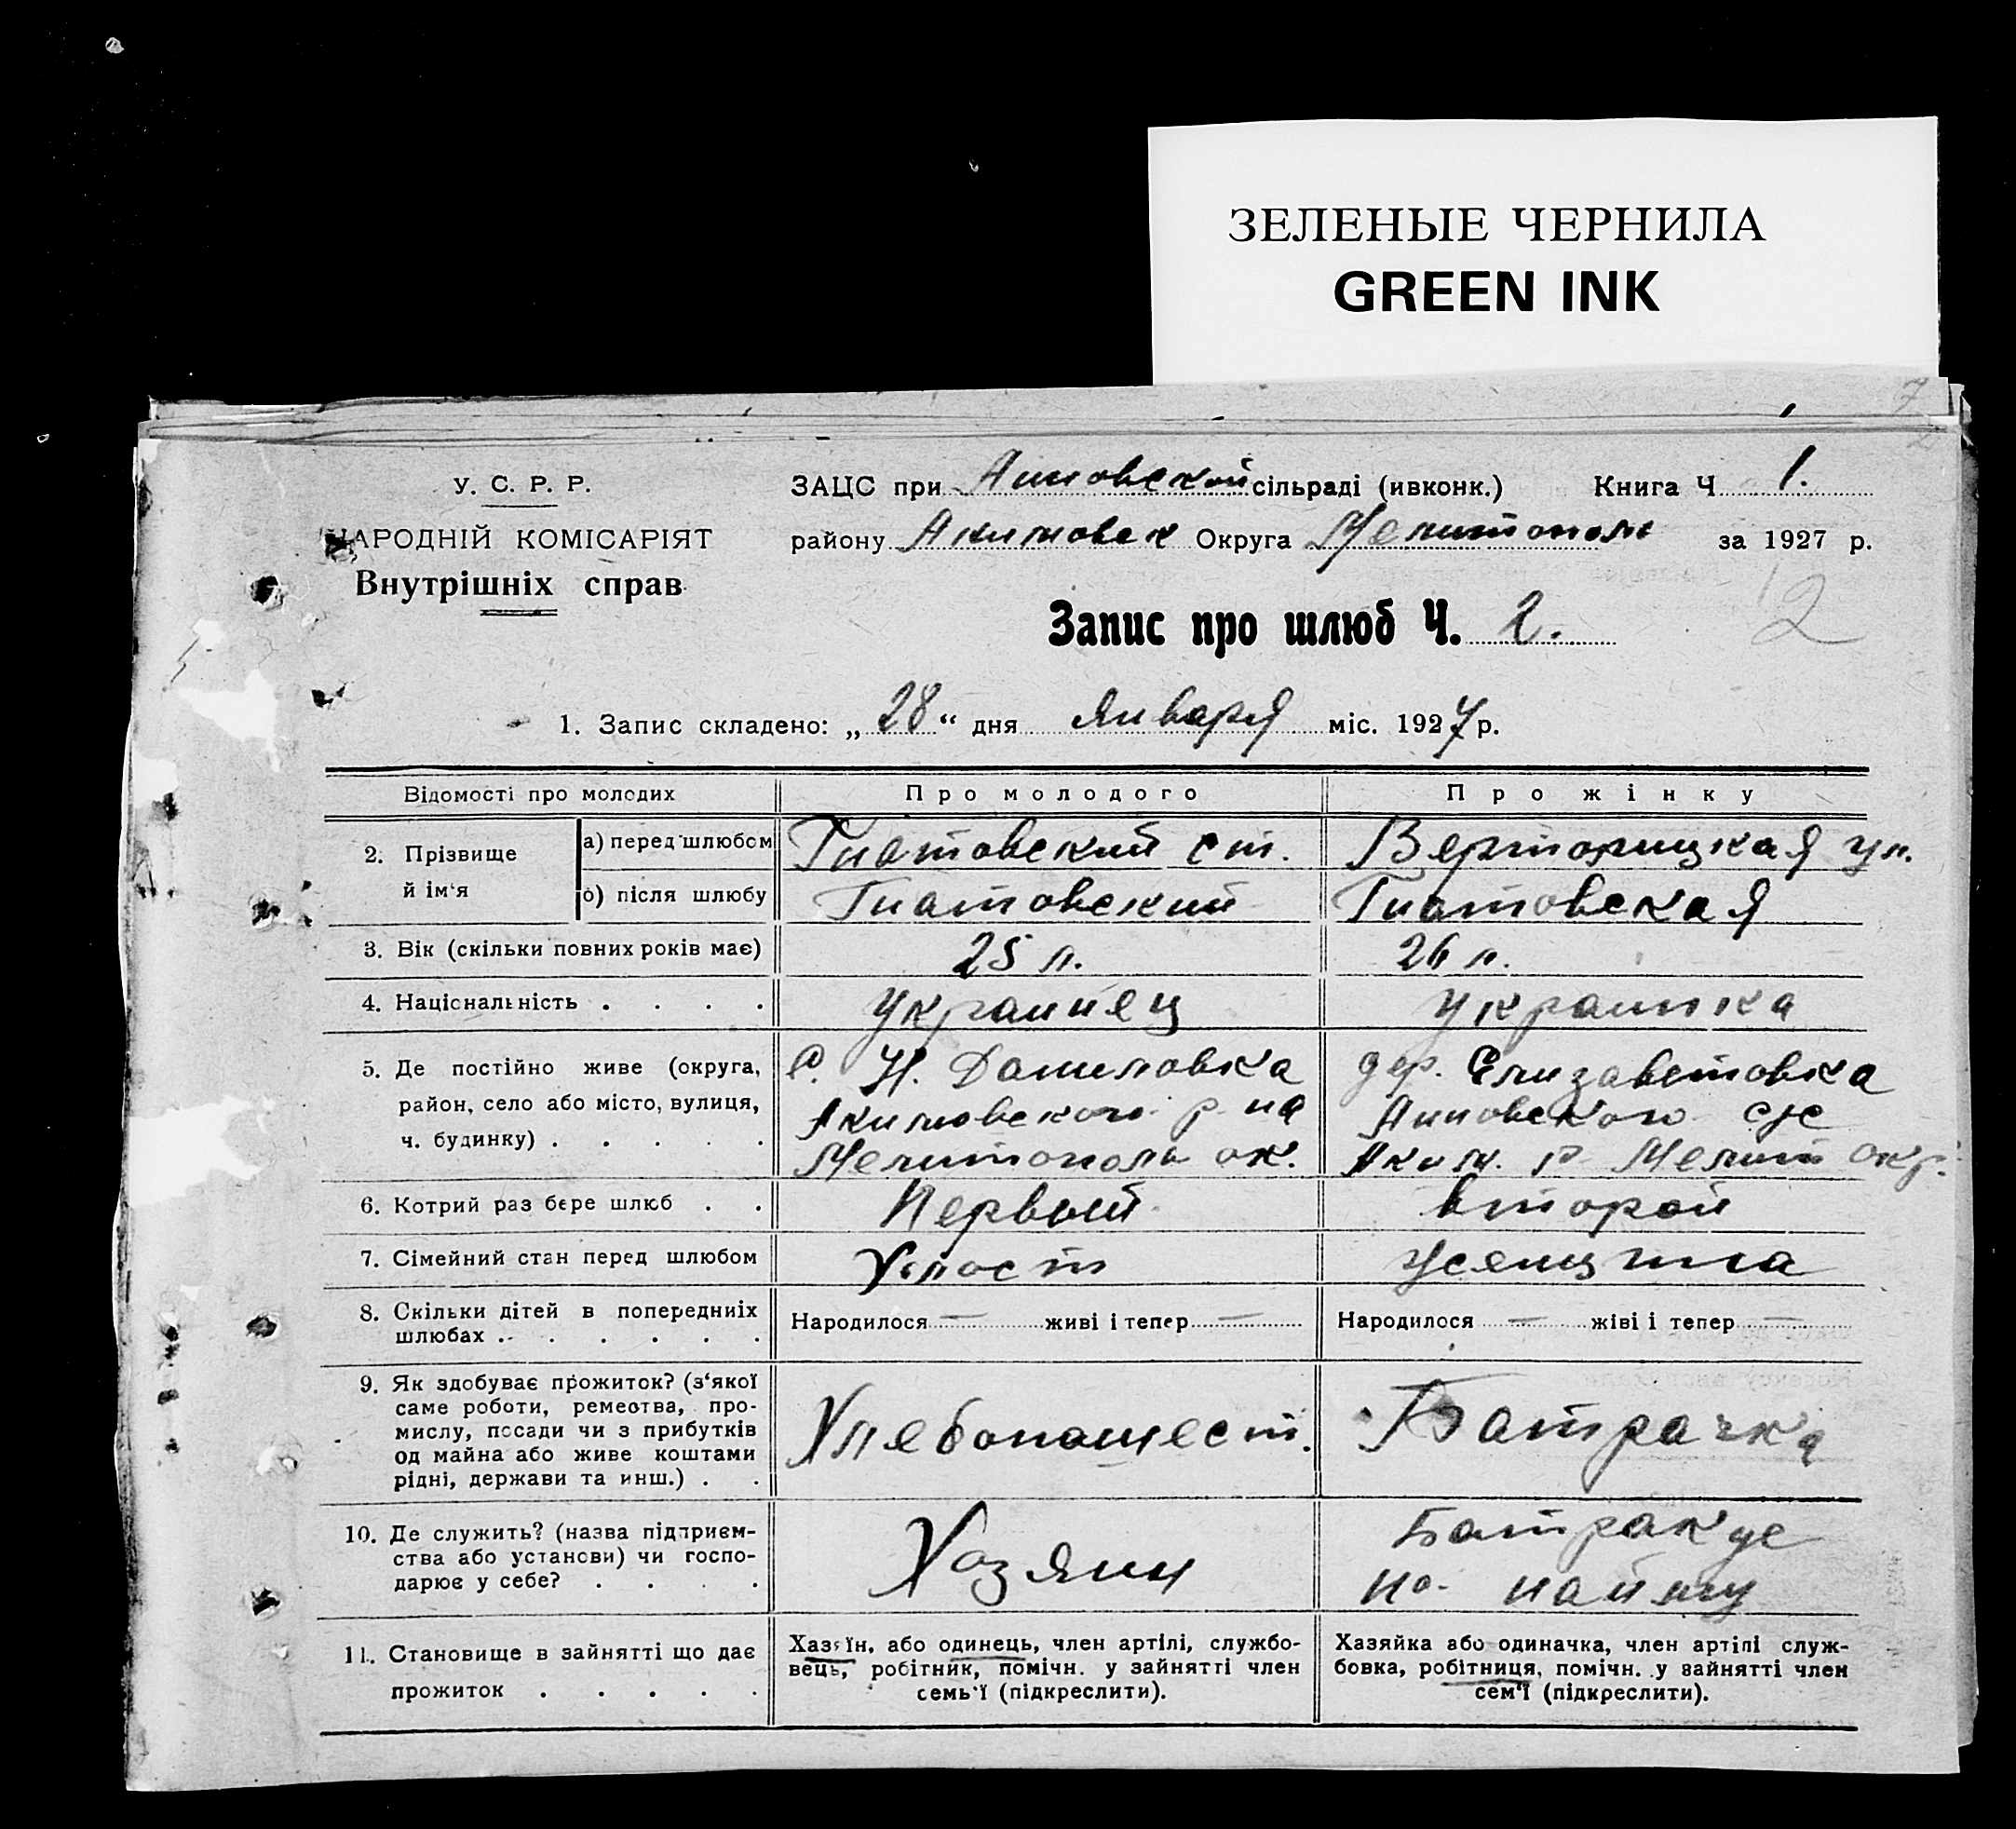 ЗЕЛЕНЫЕ ЧЕРНИЛА
GREEN INK
У. С. Р. Р.
НАРОДНІЙ КОМІСАРІЯТ
Внутрішніх справ
ЗАЦС при Анновской сільраді (ивконк.) Книга Ч 1.
району Акимовск Округа Мелитополь за 1927 р.
Запис про шлюб Ч. 2.
12
1. Запис складено: „ 28 “ дня Января міс. 1927 р.
Відомості про молодих Про молодого Про жінку
2. Прізвище й ім‘я
а) перед шлюбом Гнатовский ст.
б) після шлюбу Гнатовский Гнатовская
3. Вік (скільки повних років має) 25 л. 26 л.
4. Національність . . . . Украинец Украинка
5. Де постійно живе (округа,
район, село або місто, вулиця,
ч. будинку) . . . . .
С. Н. Даниловка
Акимовского р-на
Мелитополь ок.
дер. Єлизаветовка
Анновского с/с
Аким. р Мелит окр.
6. Котрий раз бере шлюб . . Первый Второй
7. Сімейний стан перед шлюбом Холост
8. Скільки дітей в попередниіх
шлюбах . . . . . .
Народилося — живі і тепер —
Народилося — жіві і тепер —
9. Як здобуває прожиток? (з‘якої
саме роботи, ремества, про-
мислу, посади чи з прибутків
од майна або живе коштами
рідні, держави та инш.) . .
Хлебопашест.
Батрачка
10. Де служить? (назва підприєм-
ства або установи) чи госпо-
дарює у себе? . . . .
Хозяин
на найму
11. Становище в зайнятті що дає
прожиток . . . . .
Хазяїн, або одинець, член артілі, службо-
вець, робітник, помічн. у зайнятті член
семь‘ї (підкреслити).
Хазяйка або одиначка, член артілі служ-
бовка, робітниця, помічн. у зайнятті член
сем‘ї (підкреслити).